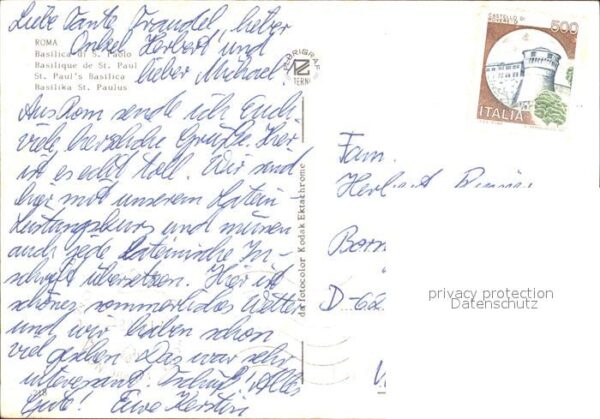 Liebe Tante Traudel, lieber
Onkel Herbert und
lieber Michael!
ROMA
Basilica di S. Paolo
Basilique de St. Paul
St. Paul's Basilica
Basilika St. Paulus
Aus Rom sende ich Euch
viele herzliche Grüße. Hier
ist es echt toll. Wir sind
hier mit unserem Latein-
Leistungskurs und müssen
auch jede lateinische In-
schrift übersetzen. Hier ist
schönes sommerliches Wetter
und wir haben schon
viel gesehen. Das war sehr
interessant. Tschüß! Alles
Gute! Eure Kerstin
218
da fotocolor Kodak Ektachrome
CASTELLO DI
ROVERETO
500
ITALIA
Fam.
Herbert
D-62
privacy protection
Datenschutz